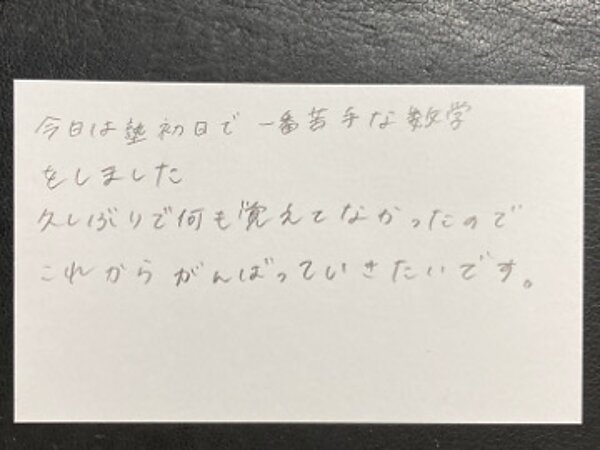 今日は塾初日で一番苦手な数学
をしました
久しぶりで何も覚えてなかったので
これからがんばっていきたいです。